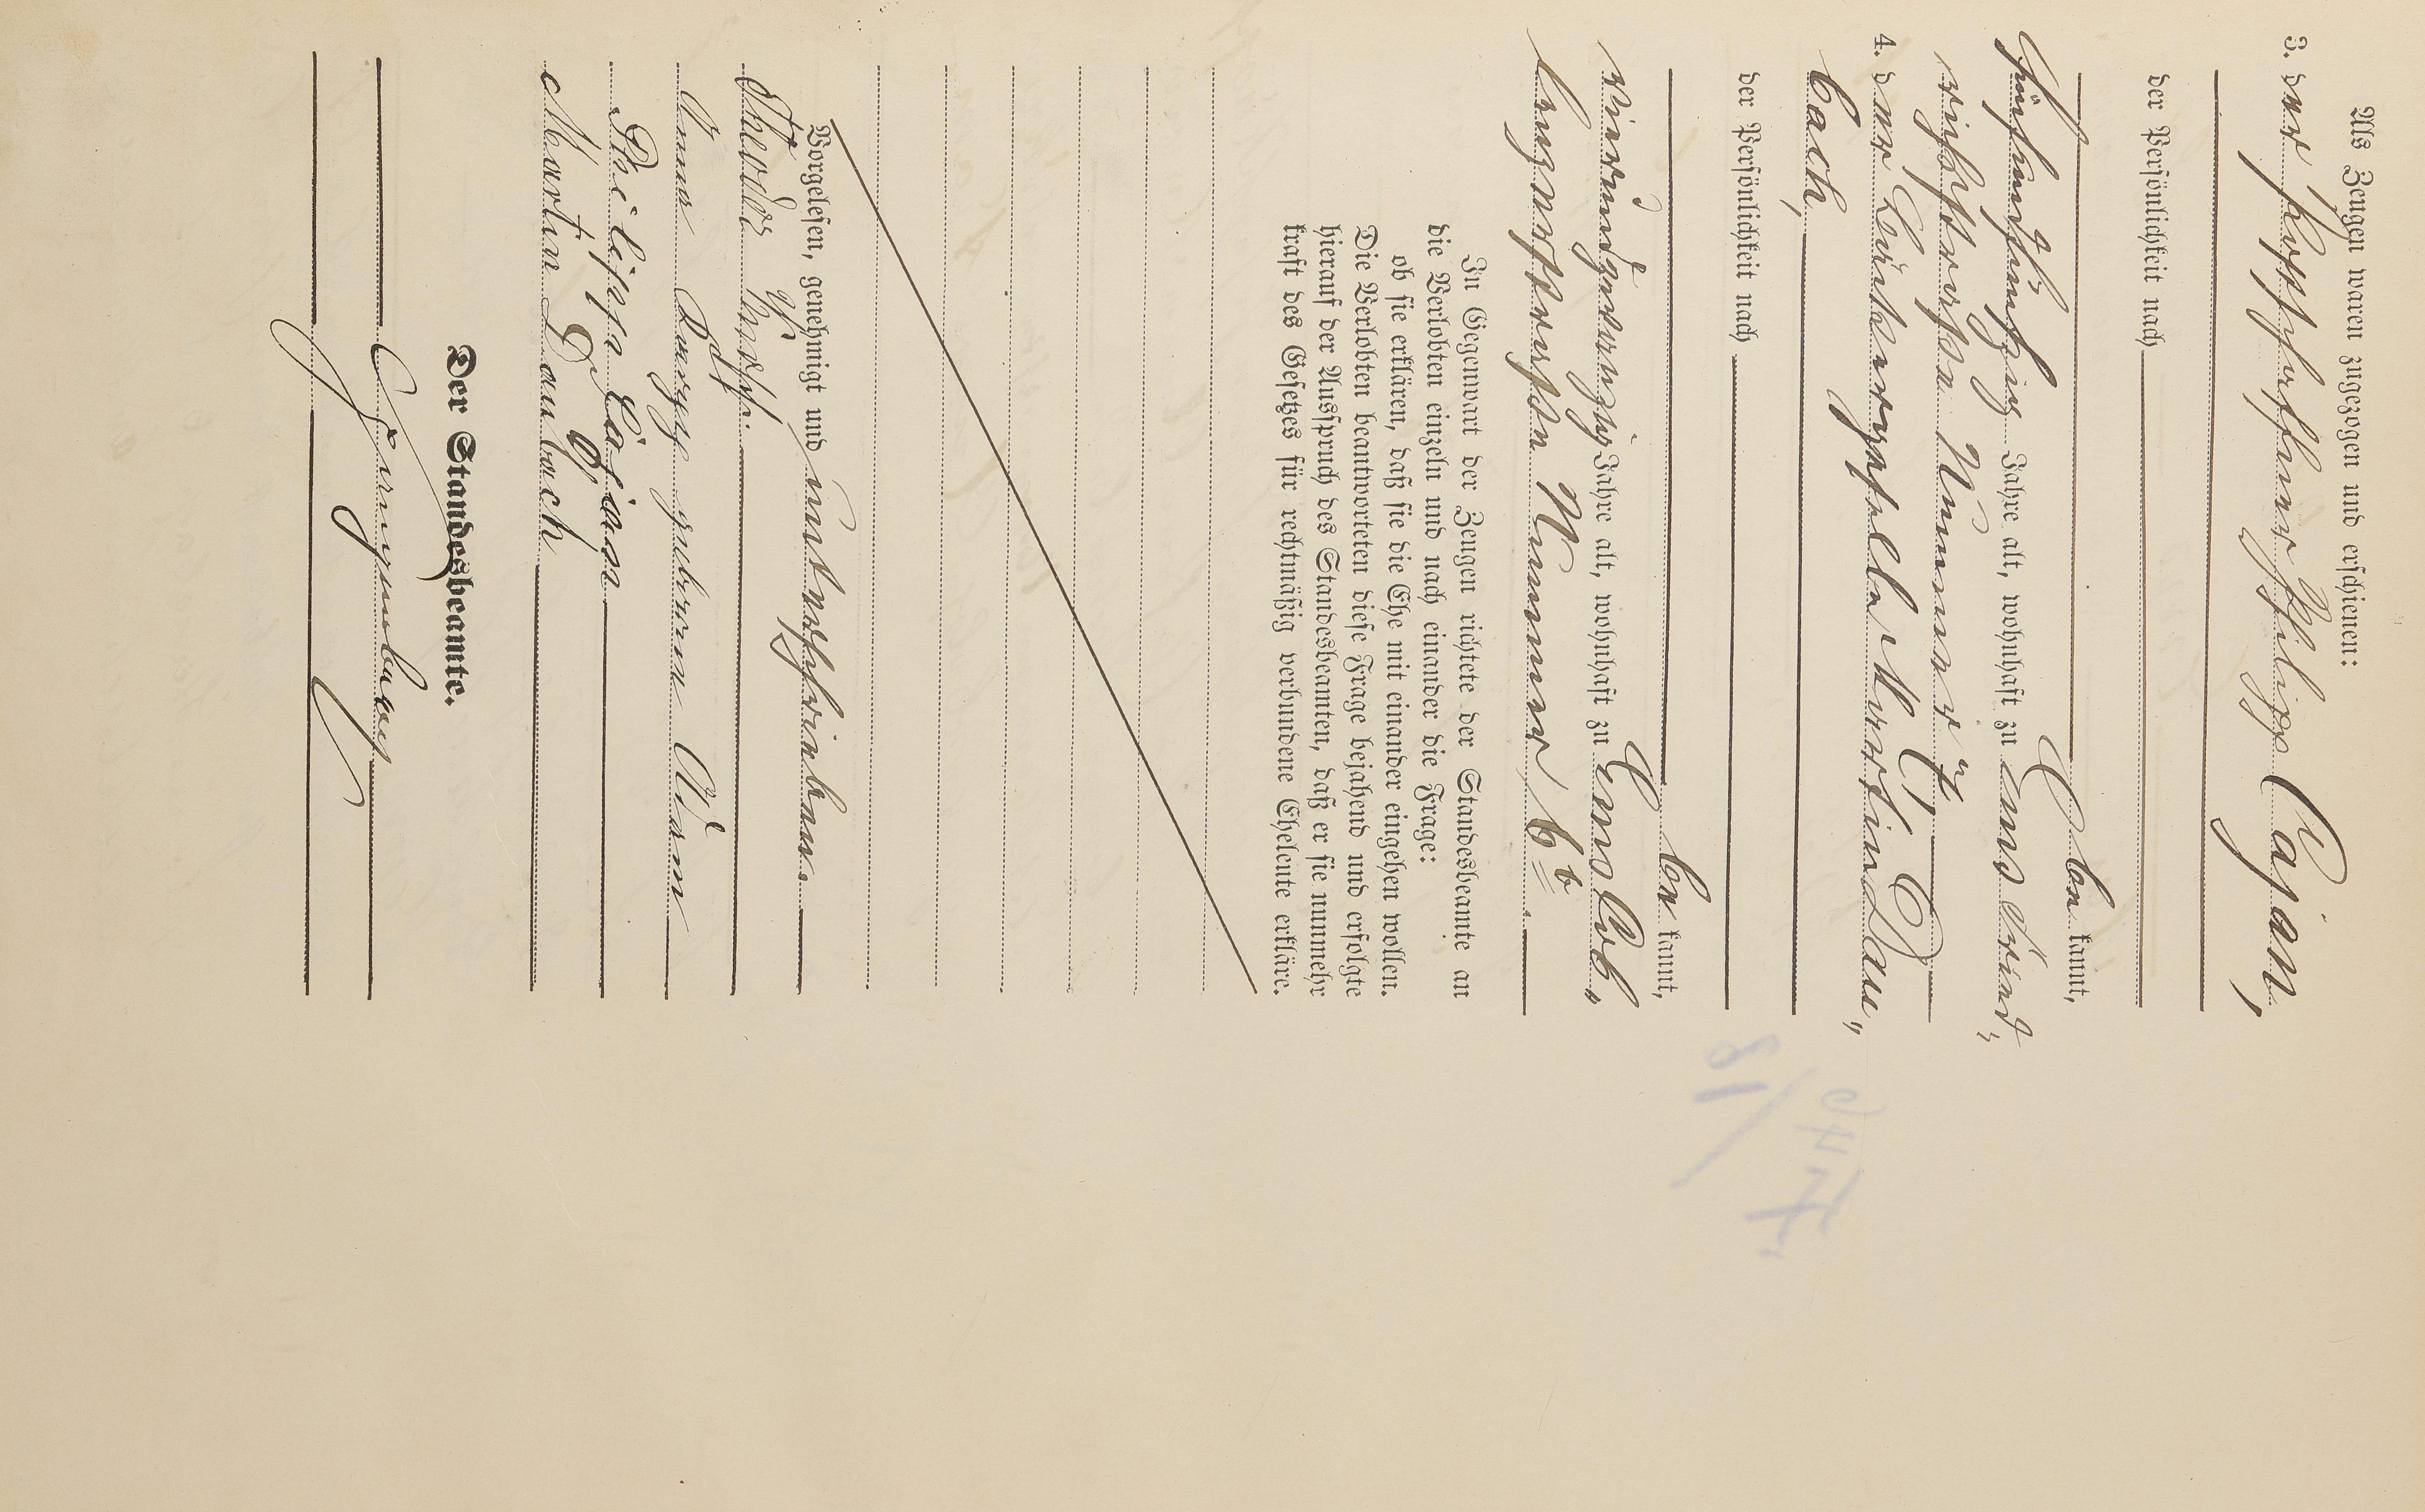 Als Zeugen waren zugezogen und erschienen:
3. der Postschaffner Philipp Cajan,
der Persönlichkeit nach
be kannt,
fünfunfünfzig Jahre alt, wohnhaft zu Ems Fried„
richstraße Nummer 4
4. der Lackirergeselle Martin Dau„
bach,
der Persönlichkeit nach
be kannt,
vierundzwanzig Jahre alt, wohnhaft zu Ems Cob„
lenzerstraße Nummer 6 b.
In Gegenwart der Zeugen richtete der Standesbeamte an
die Verlobten einzeln und nach einander die Frage:
ob sie erklären, daß sie die Ehe mit einander eingehen wollen.
Die Verlobten beantworteten diese Frage bejahend und erfolgte
hierauf der Ausspruch des Standesbeamten, daß er sie nunmehr
kraft des Gesetzes für rechtmäßig verbundene Eheleute erkläre.
Vorgelesen, genehmigt und unterschrieben.
Theodor
Anna geborene
Philipp Cajan
Martin Daubach
Der Standesbeamte.